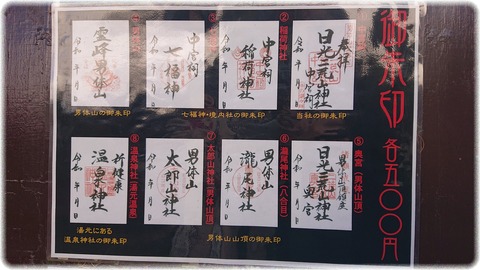 御朱印 各五〇〇円
②稲荷神社
奉拝
日光二荒山神社
中宮祠
令和 年 月 日
中宮祠
稲荷神社
令和 年 月 日
中宮祠
七福神
令和 年 月 日
霊峰男体山
令和 年 月 日
当社の御朱印
七福神・境内社の御朱印
男体山の御朱印
⑤奥宮(男体山頂)
⑥瀧尾神社(八合目)
⑦太郎山神社(男体山頂)
⑧温泉神社(湯元温泉)
男体山頂鎮座
日光二荒山神社
奥宮
令和 年 月 日
男体山
瀧尾神社
令和 年 月 日
男体山
太郎山神社
令和 年 月 日
祈健康
温泉神社
令和 年 月 日
男体山山頂の御朱印
湯元にある
温泉神社の御朱印